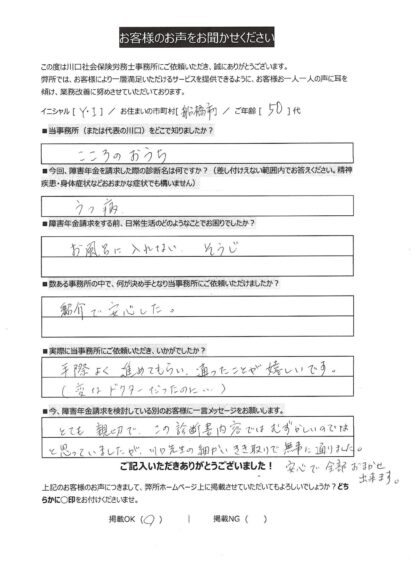 お客様のお声をお聞かせください
この度は川口社会保険労務士事務所にご依頼いただき、誠にありがとうございます。
弊所では、お客様により一層満足いただけるサービスを提供できるように、お客様お一人一人の声に耳を
傾け、業務改善に努めさせていただいております。
イニシャル [ Y・I ] / お住まいの市町村 [ 船橋市 ] / ご年齢 [ 50 ] 代
■当事務所（または代表の川口）をどこで知りましたか？
こころのおうち
■今回、障害年金を請求した際の診断名は何ですか？（差し付けえない範囲内でお答えください。精神
疾患・身体症状などおおまかな症状でも構いません）
うつ病
■障害年金請求をする前、日常生活のどのようなことでお困りでしたか？
お風呂に入れない そうじ
■数ある事務所の中で、何が決め手となり当事務所にご依頼いただけましたか？
紹介で安心した。
■実際に当事務所にご依頼いただき、いかがでしたか？
手際よく進めてもらい、通ったことが嬉しいです。
(変なドクターだったのに…)
■今、障害年金請求を検討している別のお客様に一言メッセージをお願いします。
とても親切で、この診断書内容ではむずかしいのでは
と思っていましたが、川口先生の細かいきき取りで無事に通りました。
ご記入いただきありがとうございました！ 安心で全部おまかせ
出来ます。
上記のお客様のお声につきまして、弊所ホームページ上に掲載させていただいてもよろしいでしょうか？どち
らかに○印をお付けくださいませ。
掲載OK（○） | 掲載NG（ ）